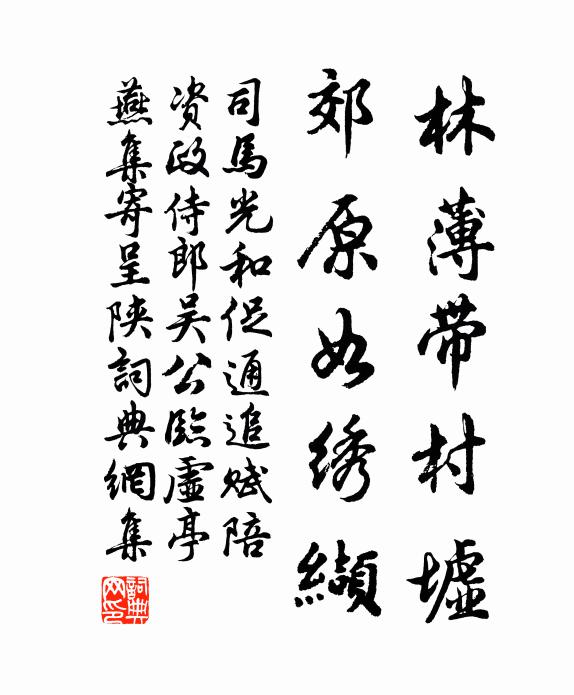 林薄带村墟
郊原如绣缬
司馬光和促通追赋陪
资政侍郎吴公臨虛亭
燕集寄呈陕詞典網集
詞典网印